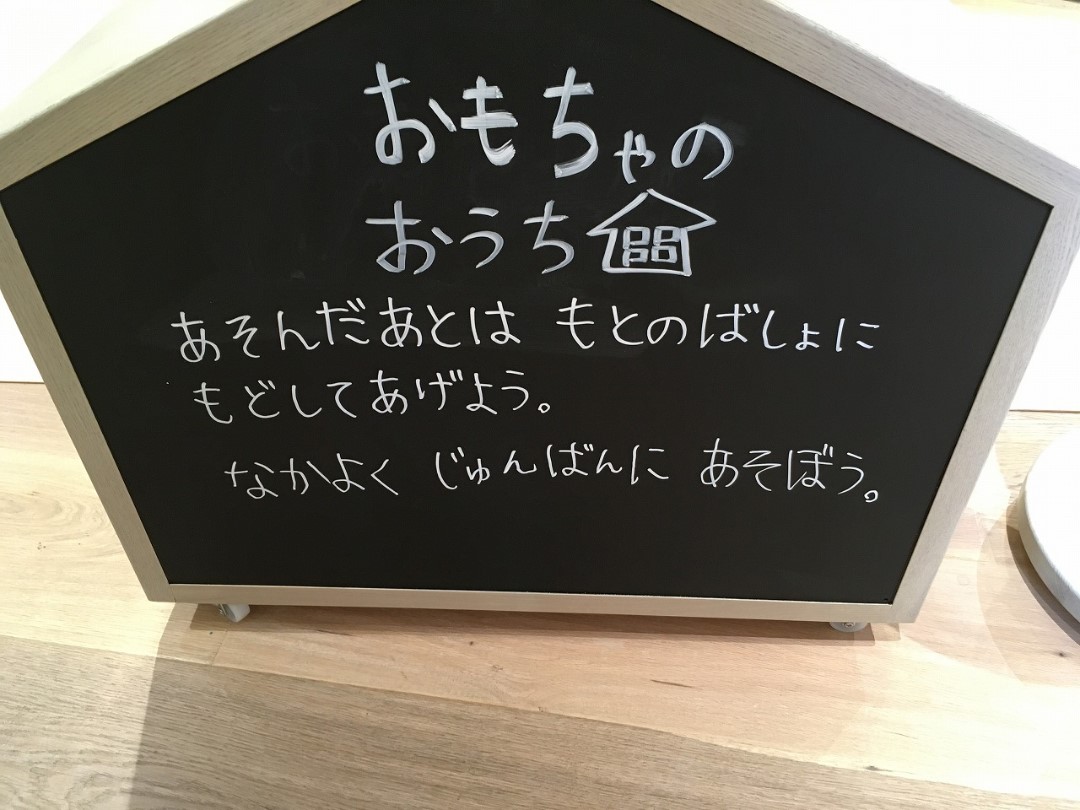 おもちゃの
おうち
あそんだあとは もとのばしょに
もどしてあげよう。
なかよく じゅんばんに あそぼう。